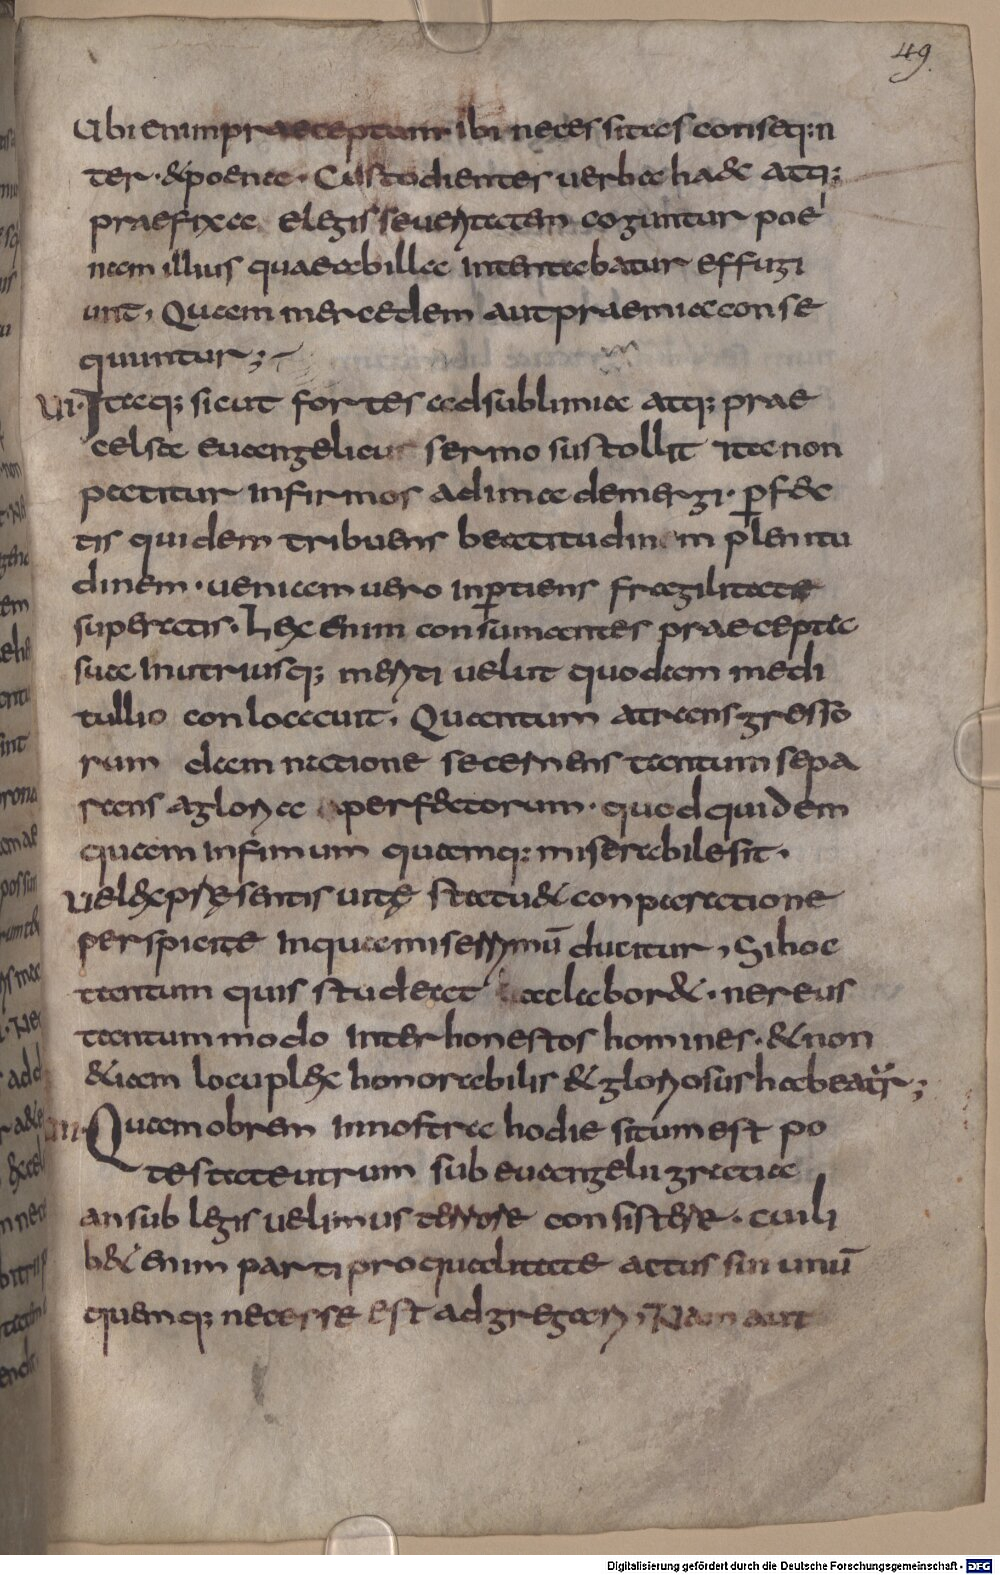 49.
Ubi enim praeceptum ibi necessitas conseq:n
ter · & poenae · Custodientes uerba haec atq;
praefixae legis seueritatem coguntur poe
nam illius quae ab illa intentabatur effugi
unt, Quam mercedem aut praemia conse
quuntur;
VI· Itaq; sicut fortes ad sublimia atq; prae
celsa euangelicus sermo sustollit ita non
patitur infirmos ad ima demergi · ꝑfec
tis quidem tribuens beatitudinem plenitu
dinem · ueniam uero inꝑtiens fragilitate
superatis · Lex enim consumantes praecepta
sua in utriusq; meriti uelut quodam medi
tullio conlocauit, Quantum a transgresso
rum damnatione secernens tantum sepa
rans a gloria perfectorum · quod quidem
quam infimum quamq; miserabile sit ·
uel ex pręsentis uitę statu & conparatione
perspicite in qua miserrimū ducitur, Si hoc
tantum quis studeat ac labor& · ne reus
tantummodo inter honestos homines · & non
&iam locuplex honorabilis & gloriosus habeatur;
Quamobrem in nostra hodie situm est po
testate utrum sub euangelii gratia
an sub legis uelimus terrore consistere · cuili
b& enim parti pro qualitate actus sui unū
quemq; necesse est adgregari, Nam aut
Digitalisierung gefördert durch die Deutsche Forschungsgemeinschaft - DFG